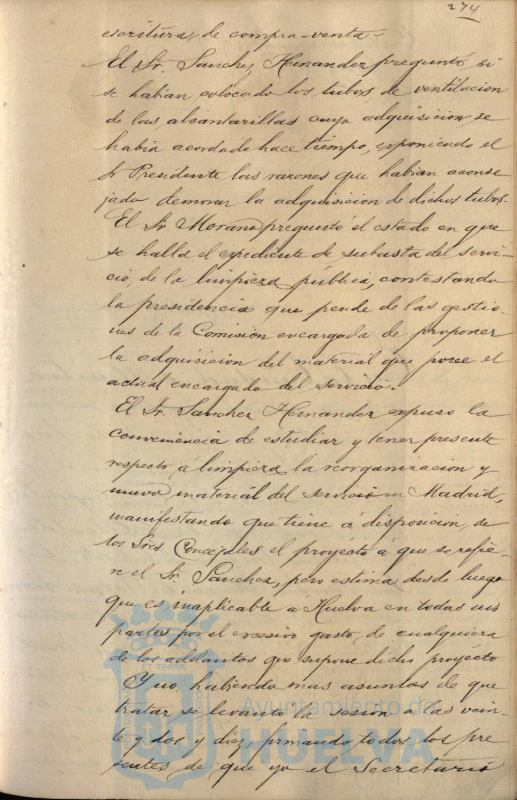 274
escrituras de compra-venta=
El Sr. Sanchez Hernandez preguntó, si
se habian colocado los tubos de ventilacion
de las alcantarillas cuya adquisicion se
habia acordado hace tiempo, exponiendo el
Sr Presidente las razones que habian aconse
jado demorar la adquisicion de dichos tubos.
El Sr. Morano preguntó el estado en que
se halla el expediente de subasta del servi-
cio de la limpieza pública, contestando
la presidencia que pende de las gestio-
nes de la Comisión encargada de proponer
la adquisicion del material que posee el
actual encargado del servicio.
El Sr. Sanchez Hernandez expuso la
conveniencia de estudiar y tener presente
respecto á limpieza la reorganizacion y
nuevo material del servicio en Madrid,
manifestando que tiene á disposicion de
los Sres Concejales el proyecto á que se refie-
re el Sr. Sanchez, pero estima desde luego
que es inaplicable á Huelva en todas sus
partes por el excesivo gasto de cualquiera
de los adelantos que supone dicho proyecto
Y no habiendo mas asuntos de que
tratar se levantó la sesion á las vein-
te y dos y diez, firmando todos los pre
sentes de que yo el Secretario
Ayuntamiento de
HUELVA